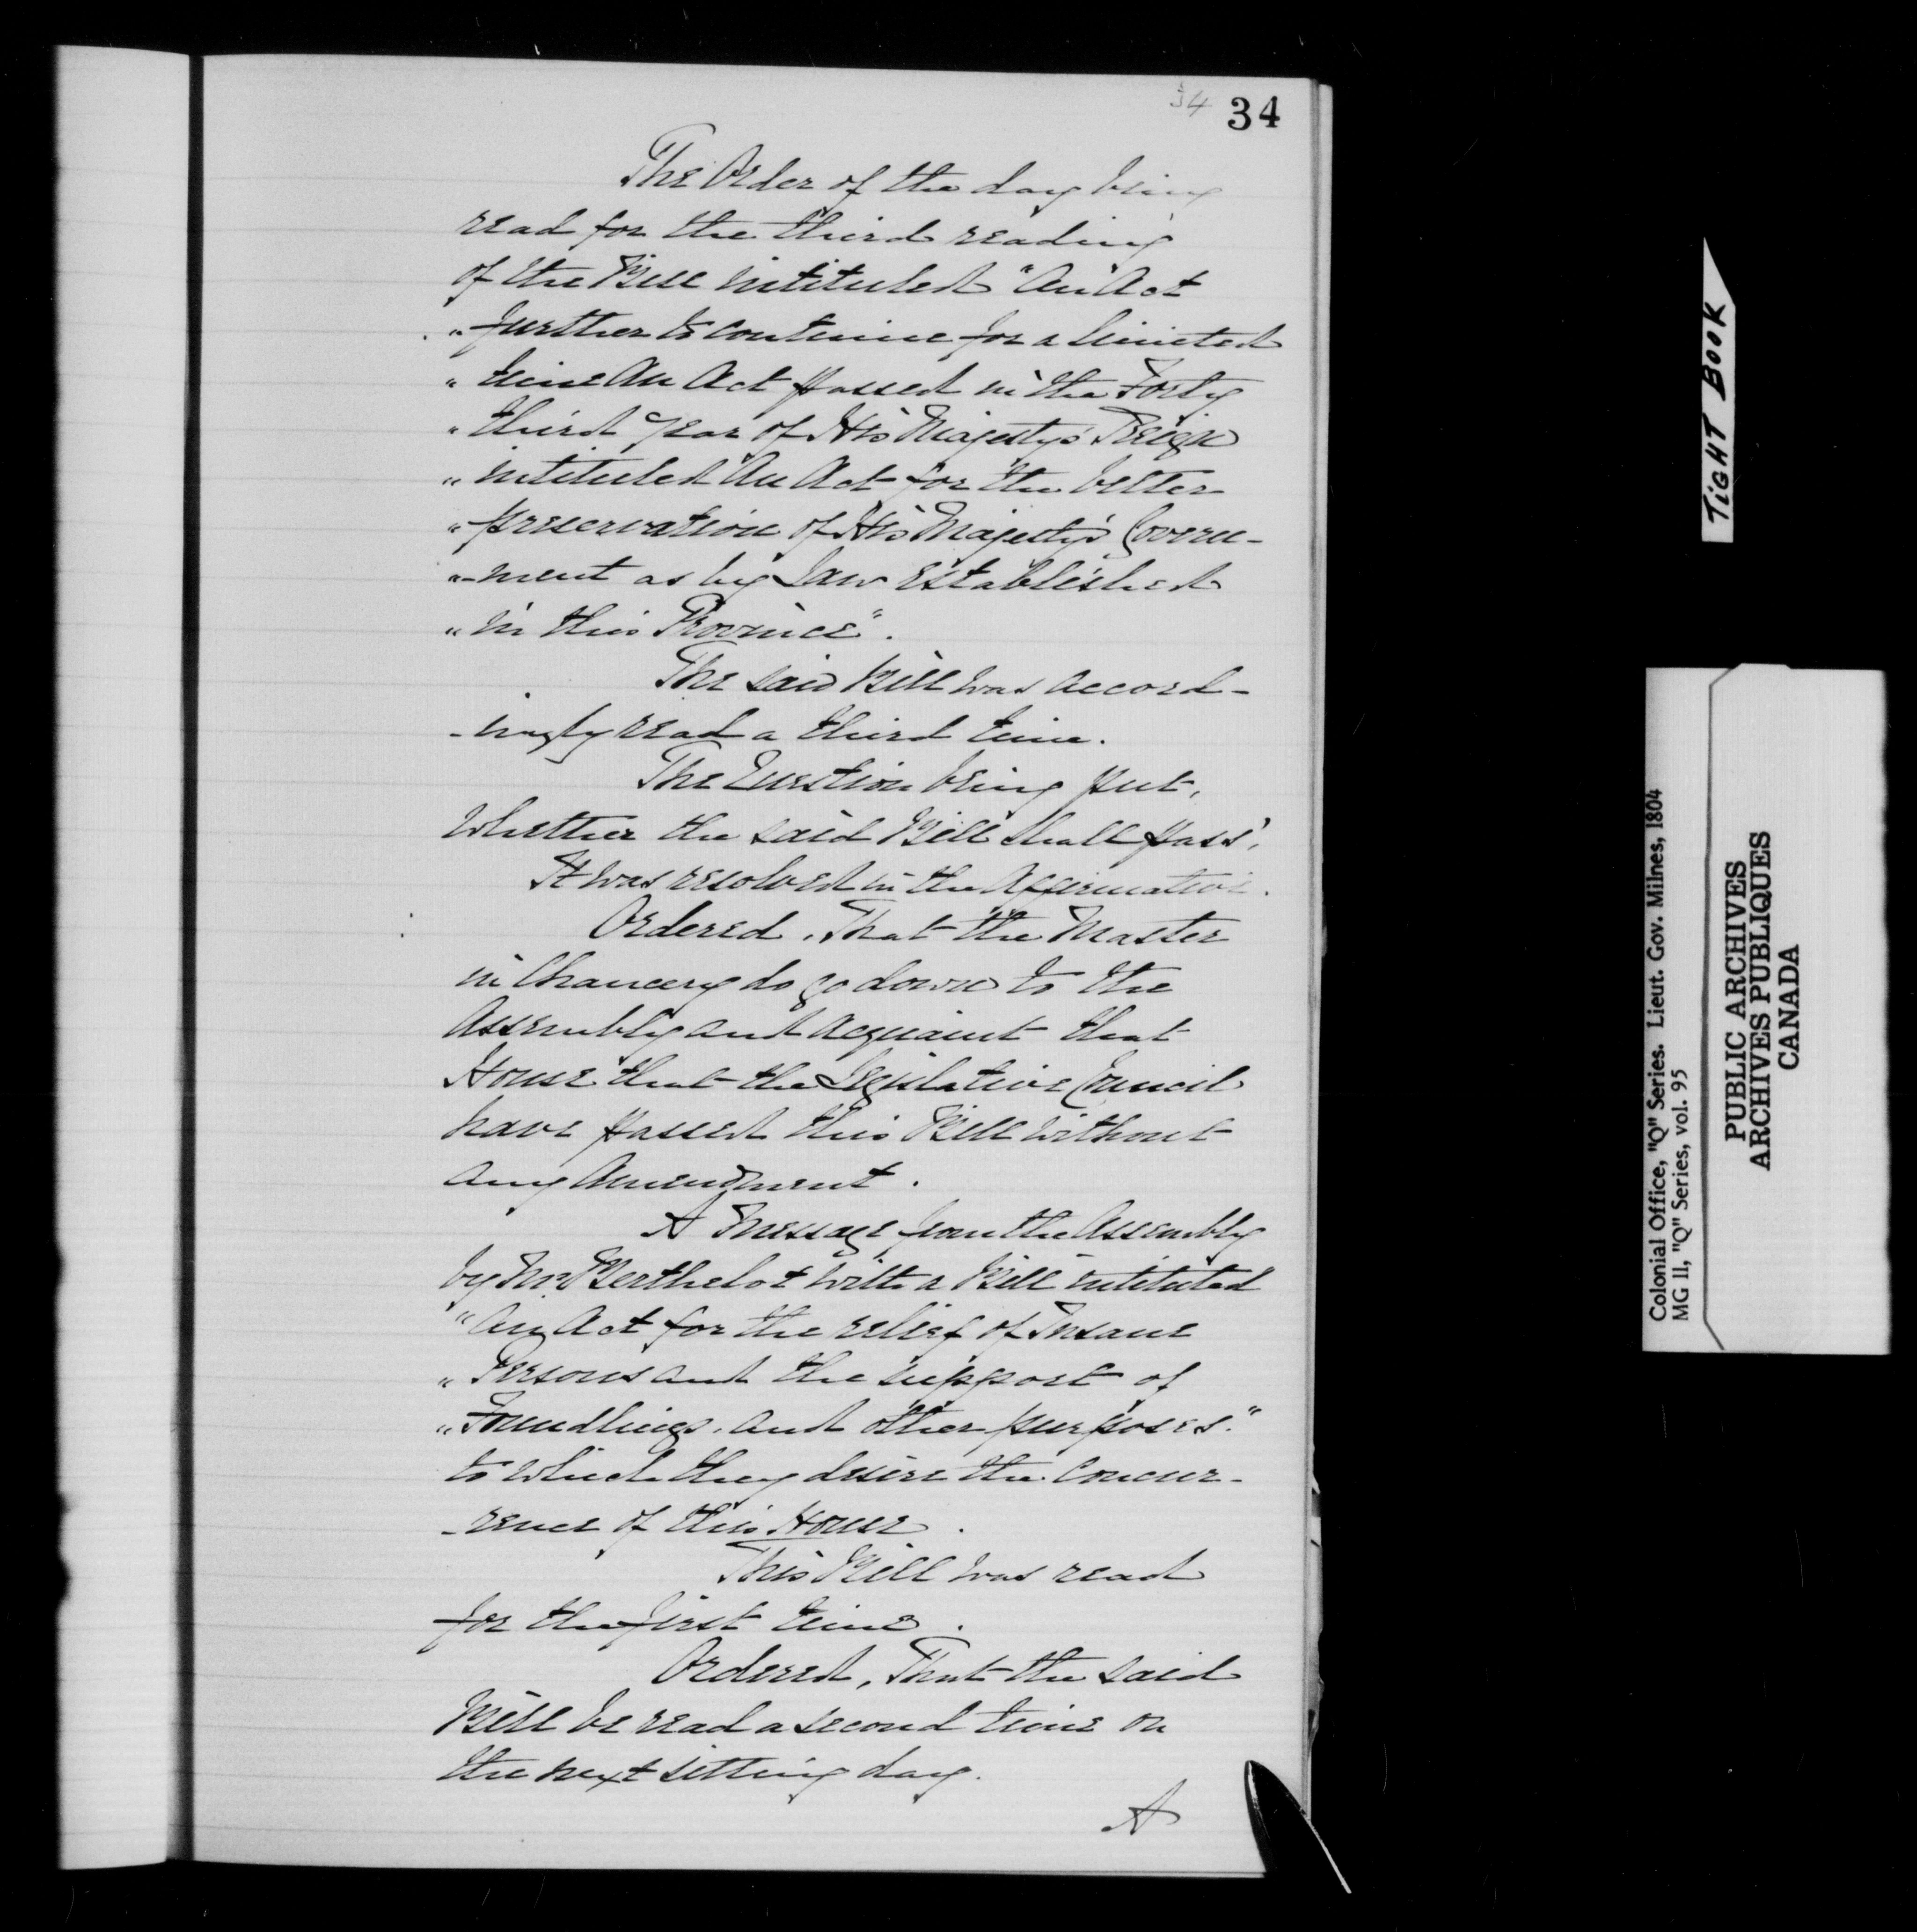 34 34
The Order of the day being
read for the third reading
of the Bill intituled "An Act
" further to continue for a limited
" time An Act passed in the Forty
" third year of His Majesty's Reign
" intituled "An Act for the better
" preservation of His Majesty's Govern-
"-ment as by Law established
" in this Province".
The said Bill was accord-
-ingly read a third time.
The Question being put,
Whether the said Bill shall pass,
It was resolved in the Affirmative.
Ordered, That the Master
in Chancery do go down to the
Assembly and acquaint that
House that the Legislative Council
have passed this Bill without
any Amendment.
A Message from the Assembly
by Mr. Berthelot with a Bill intituled
"An Act for the relief of Insane
" Persons and the support of
" Foundlings, and other purposes."
to which they desire the Concur-
-rence of this House.
This Bill was read
for the first time.
Ordered, That the said
Bill be read a second time on
the next sitting day.
A
TIGHT BOOK
Colonial Office, "Q" Series. Lieut. Gov. Milnes, 1804
MG 11, "Q" Series, vol. 95
PUBLIC ARCHIVES
ARCHIVES PUBLIQUES
CANADA